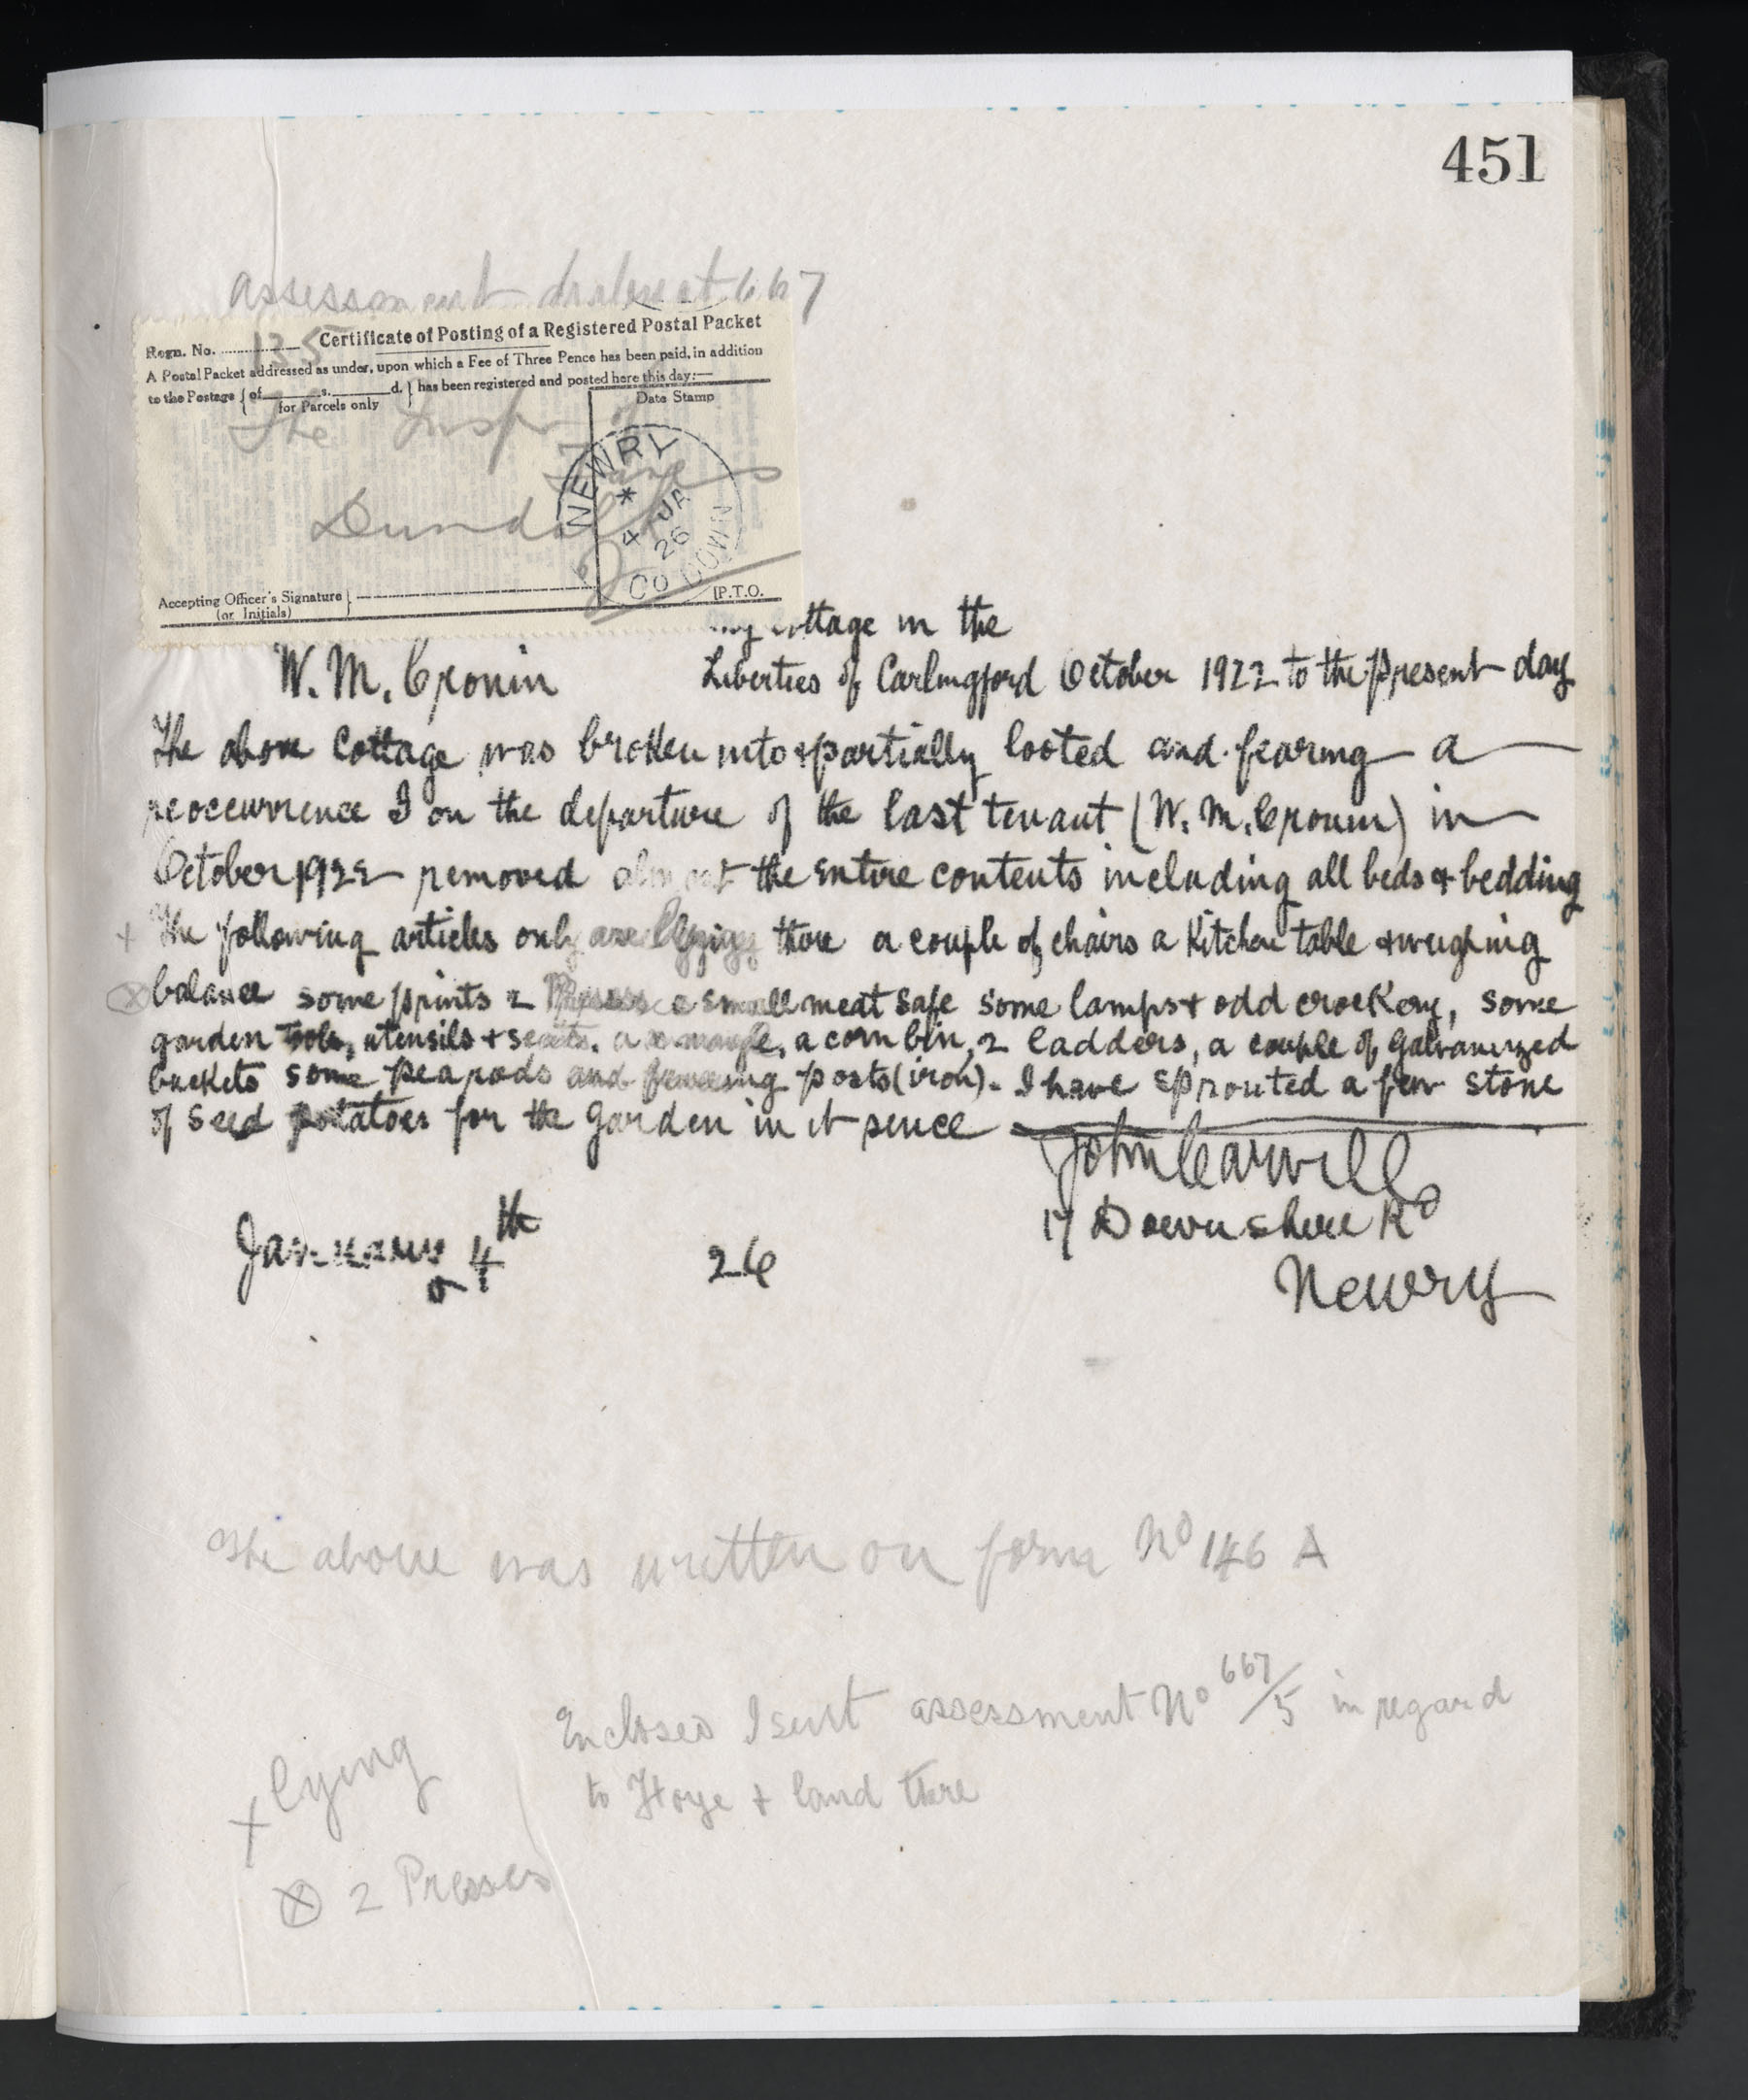 451
assessment 667
Certificate of Posting of a Registered Postal Packet
Regn. No. 135
A Postal Packet addressed as under, upon which a Fee of Three Pence has been paid, in addition
to the Postage { of s. d. } has been registered and posted here this day:—
for Parcels only
Date Stamp
The Inspr of
Taxes
Dundalk
NEWRY
4 JA
26
CO DOWN
Accepting Officer's Signature }
(or Initials)
[P.T.O.
my cottage in the
W. M. Cronin Liberties of Carlingford October 1922 to the present day
The above Cottage was broken into & partially looted and fearing a
reoccurrence I on the departure of the last tenant (W. M. Cronin) in
October 1922 removed almost the entire contents including all beds & bedding
+ The following articles only are lying there a couple of chairs a Kitchen table & weighing
⊗ balance some prints 2 Presses a small meat safe some lamps & odd crockery, some
garden tools, utensils & seats, a mangle, a corn bin, 2 ladders, a couple of galvanized
buckets some pea rods and fencing posts (iron). I have sprouted a few stone
of seed potatoes for the garden in it since
John Carvill
17 Downshire Rd
January 4th 26
Newry
The above was written on form No 146 A
Encloses I sent assessment No 667/5 in regard
to House & land there
x lying
⊗ 2 Presses